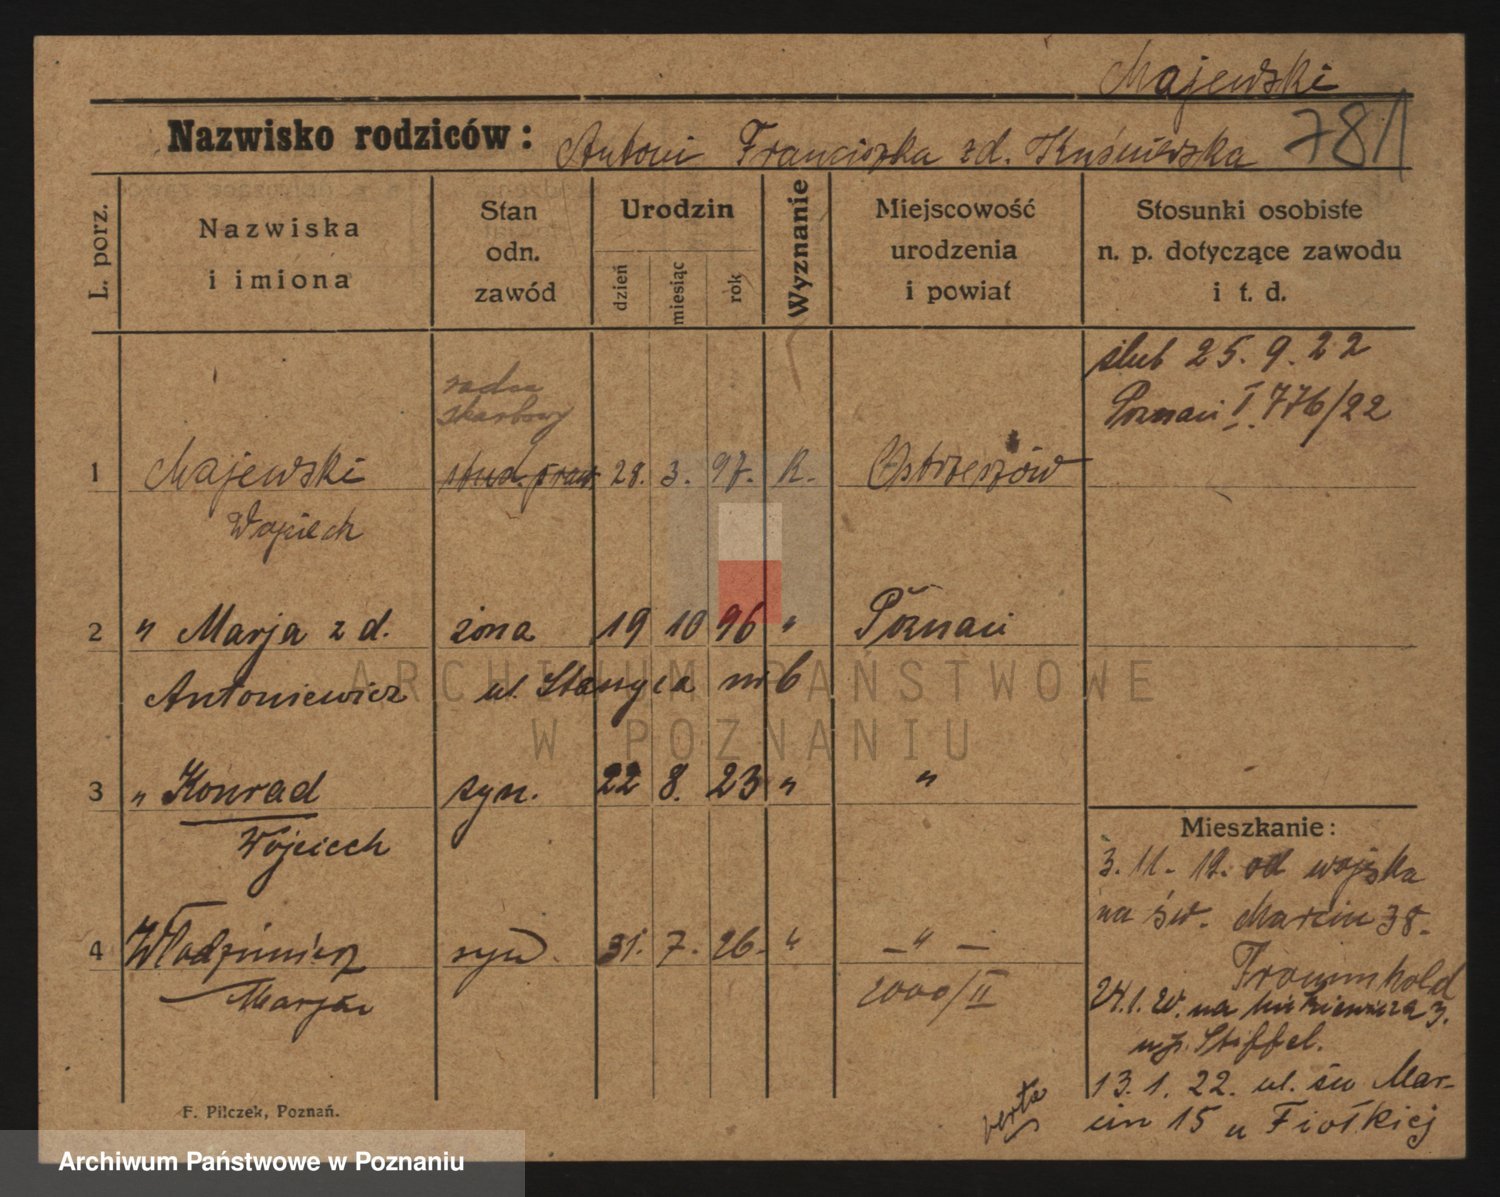 Majewski
Nazwisko rodziców: Antoni Franciszka zd. Kuśnierska 781
L. porz.
Nazwiska i imiona
Stan odn. zawód
Urodzin
dzień miesiąc rok
Wyznanie
Miejscowość urodzenia i powiat
Stosunki osobiste n. p. dotyczące zawodu i t. d.
ślub 25. 9. 22
Poznań I. 776/22
radca
skarbowy
1 Majewski stud. praw. 28. 3. 97. R. Ostrzeszów
Wojciech
2 " Marja z d. żona 19 10 96 " Poznań
Antoniewicz ul. Stangla nr 6
3 " Konrad syn. 22 8. 23 " "
Wojciech
4 Włodzimierz syn. 31. 7. 26. " – " –
Marjan 2000/II
Mieszkanie:
3. 11. 19. od wojska
na św. Marcin 38.
Frommhold
24.1.20. na Mickiewicza 3.
u Stiffel.
13. 1. 22. ul. św Mar-
cin 15 u Fiołkiej
verte
F. Pilczek, Poznań.
ARCHIWUM PAŃSTWOWE
W POZNANIU
Archiwum Państwowe w Poznaniu